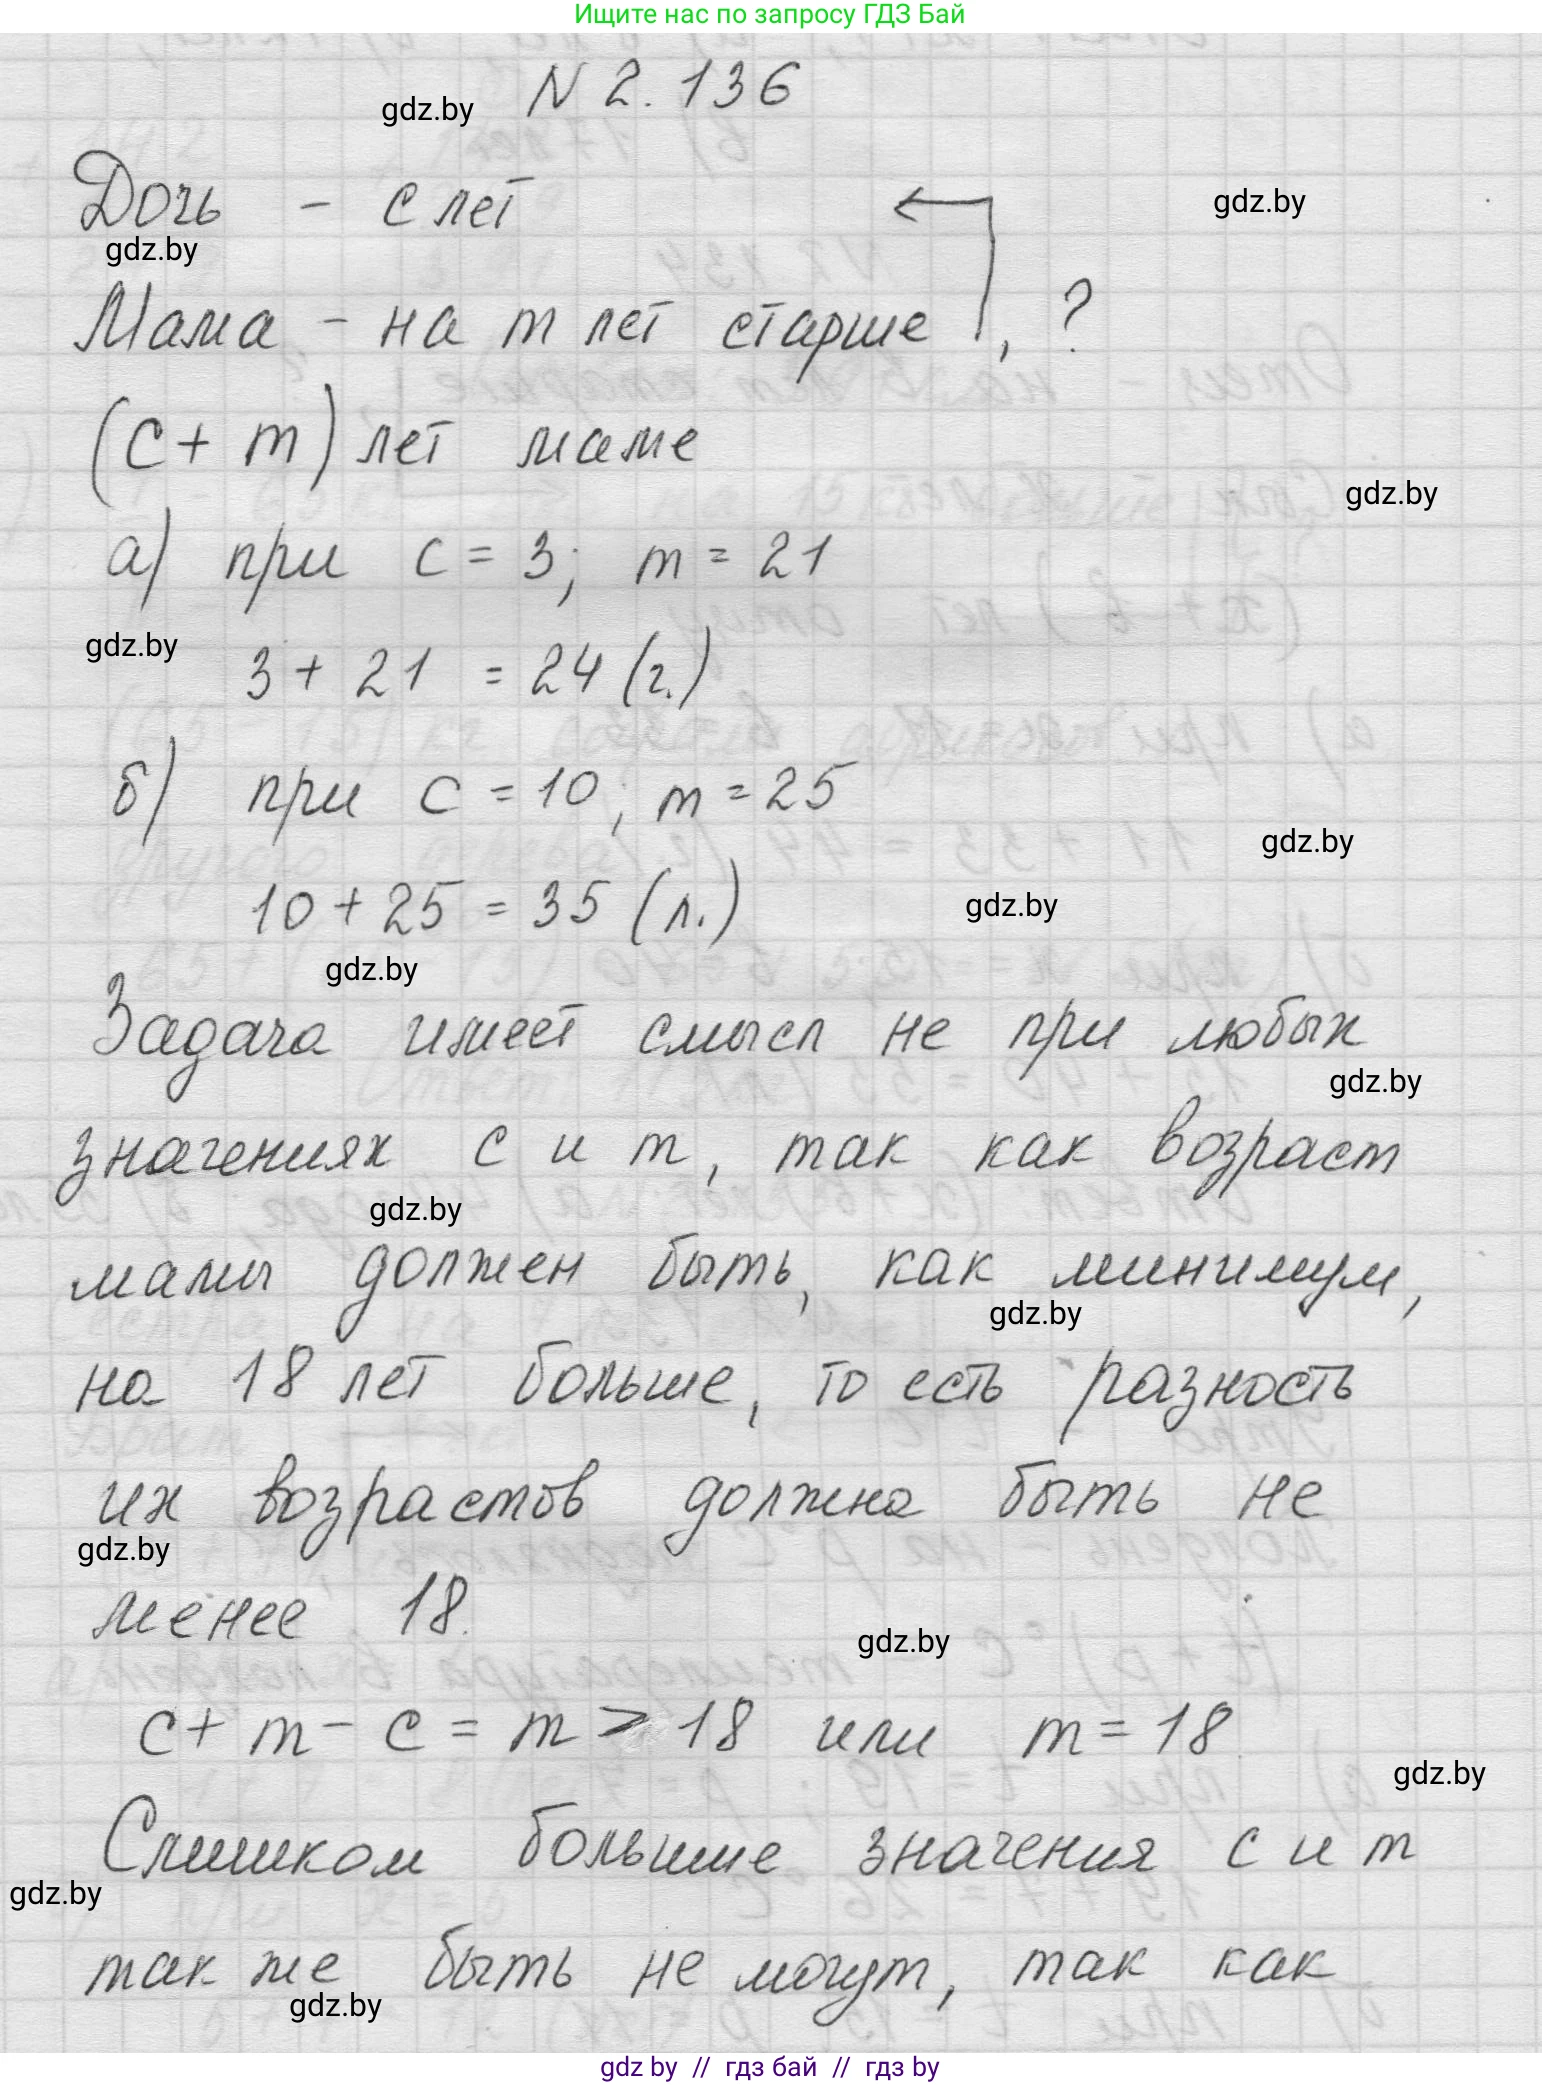 Ищите нас по запросу ГДЗ Бай
N 2.136
gdz.by
Дочь - с лет
gdz.by
gdz.by
Мама - на m лет старше, ?
(c + m) лет маме
gdz.by
а) при c = 3; m = 21
gdz.by
3 + 21 = 24 (г.)
б) при c = 10; m = 25
gdz.by
10 + 25 = 35 (л.)
gdz.by
gdz.by
Задача имеет смысл не при любых
gdz.by
значениях c и m, так как возраст
gdz.by
мамы должен быть, как минимум,
gdz.by
на 18 лет больше, то есть разность
их возрастов должна быть не
gdz.by
менее 18.
gdz.by
c + m - c = m > 18 или m = 18.
gdz.by
Слишком большие значения c и m
gdz.by
так же быть не могут, так как
gdz.by
gdz by // гдз бай // гдз by